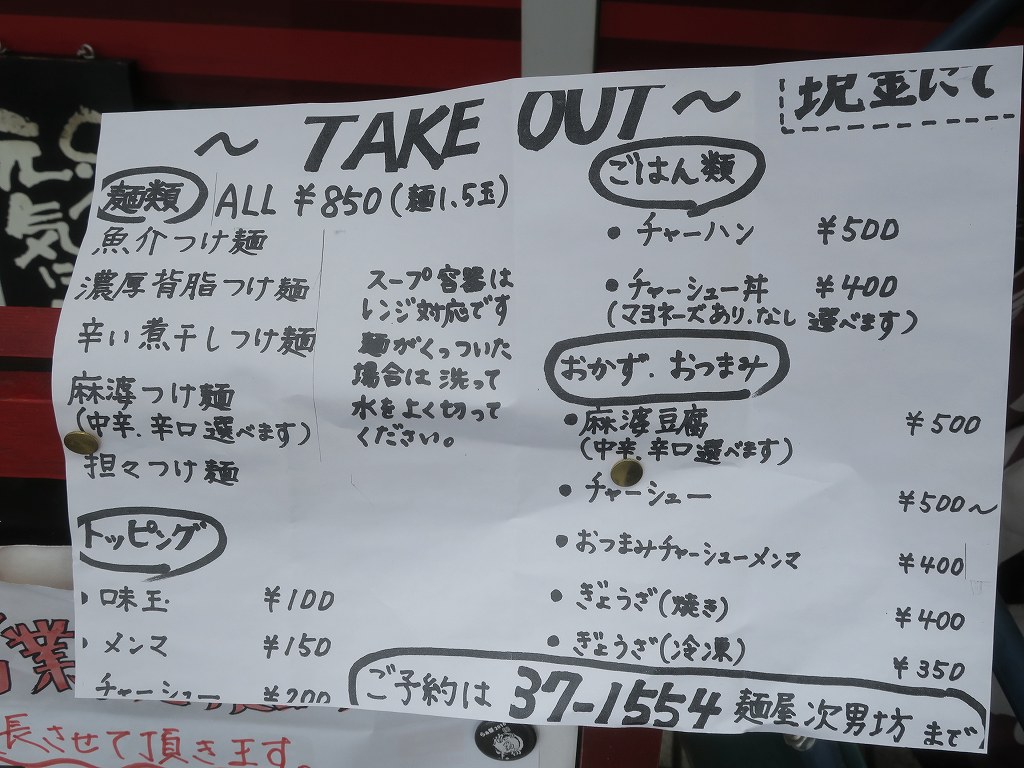 〜 TAKE OUT 〜
現金にて
麺類 ALL ¥850(麺1.5玉)
魚介つけ麺
濃厚背脂つけ麺
辛い煮干しつけ麺
麻婆つけ麺
(中辛、辛口選べます)
担々つけ麺
スープ容器は
レンジ対応です
麺がくっついた
場合は洗って
水をよく切って
ください。
トッピング
・味玉 ¥100
・メンマ ¥150
チャーシュー ¥200
ごはん類
・チャーハン ¥500
・チャーシュー丼 ¥400
(マヨネーズあり、なし選べます)
おかず、おつまみ
・麻婆豆腐 ¥500
(中辛、辛口選べます)
・チャーシュー ¥500〜
・おつまみチャーシューメンマ ¥400
・ぎょうざ(焼き) ¥400
・ぎょうざ(冷凍) ¥350
ご予約は 37-1554 麺屋次男坊まで
業
長させて頂き王す。
元
気に